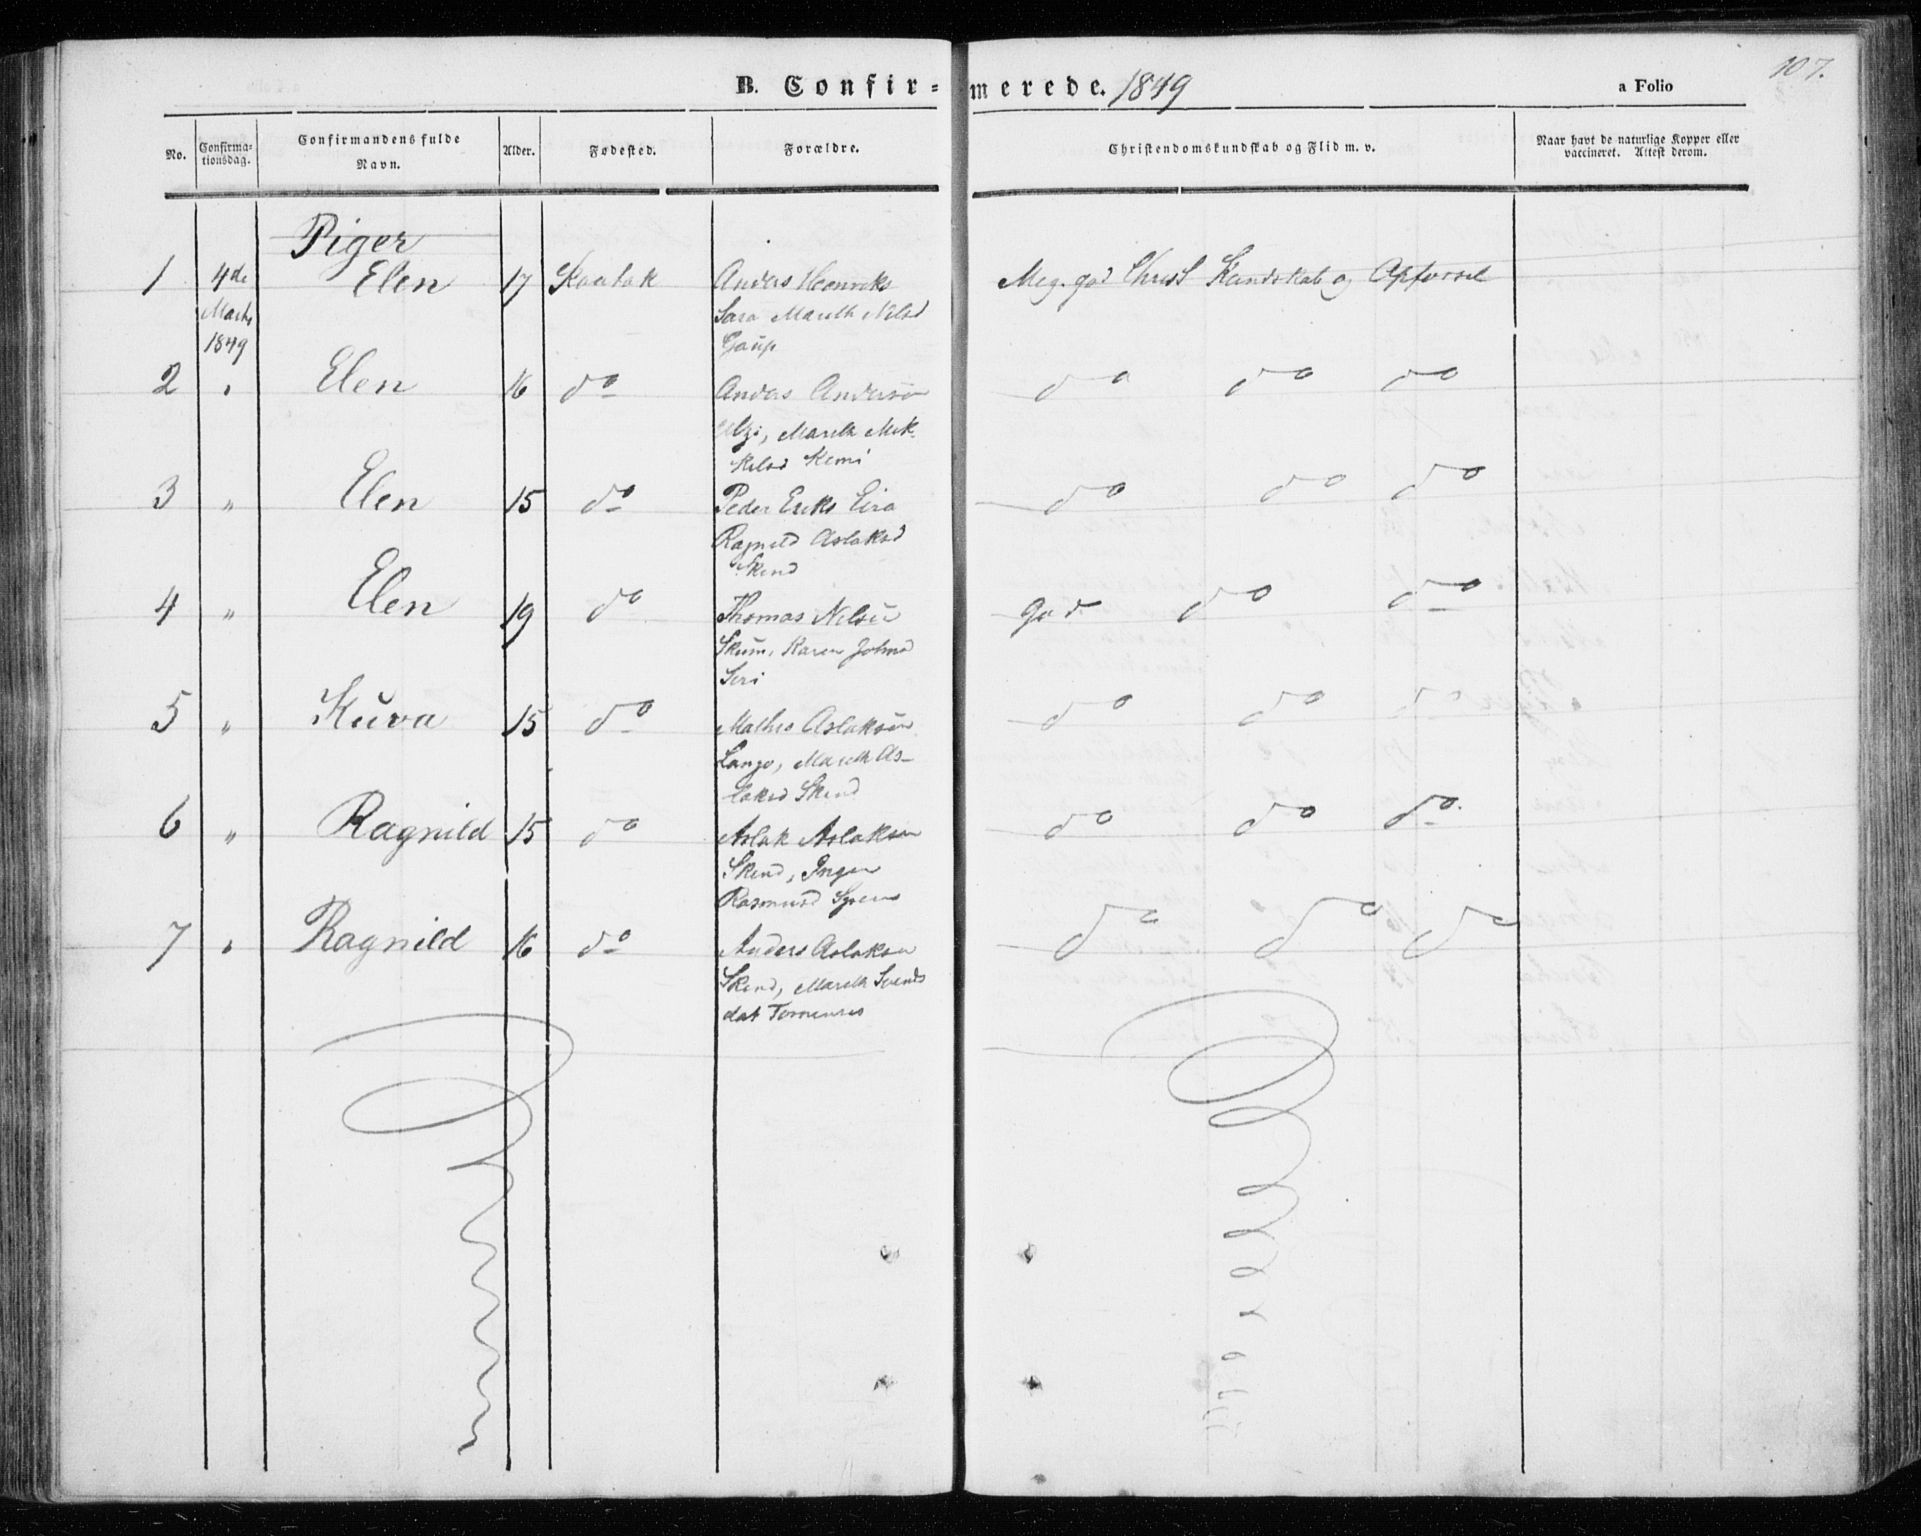 107.
B. Confir- merede. 1849
a Folio
No.
Confirma-
tionsdag.
Confirmandens fulde
Navn.
Alder.
Fødested.
Forældre.
Christendomskundskab og Flid m. v.
Naar havt de naturlige Kopper eller
vaccineret. Attest derom.
Piger
1 4de Elen 17 Kautok Anders Henriks Meg. god Christ Kundskab og Opførsel
Marts Sara Mareth Nilsd
1849 Gaup
2 " Elen 16 do Anders Andersøn do do do
Utzi, Mareth Mik-
kelsd Kemi
3 " Elen 15 do Peder Eriks Eira do do do
Ragnild Aslaksd
Skind
4 " Elen 19 do Thomas Nilsen god do do
Skum, Karen Johnsd
Siri
5 " Kuva 15 do Mathis Aslaksøn do do do
Lango, Mareth As-
laksd Skind
6 " Ragnild 15 do Aslak Aslaksen do do do.
Skind, Inger
Rasmusd
7 " Ragnild 16 do Anders Aslaksen do do do
Skind, Mareth Svends
dat Tornensis